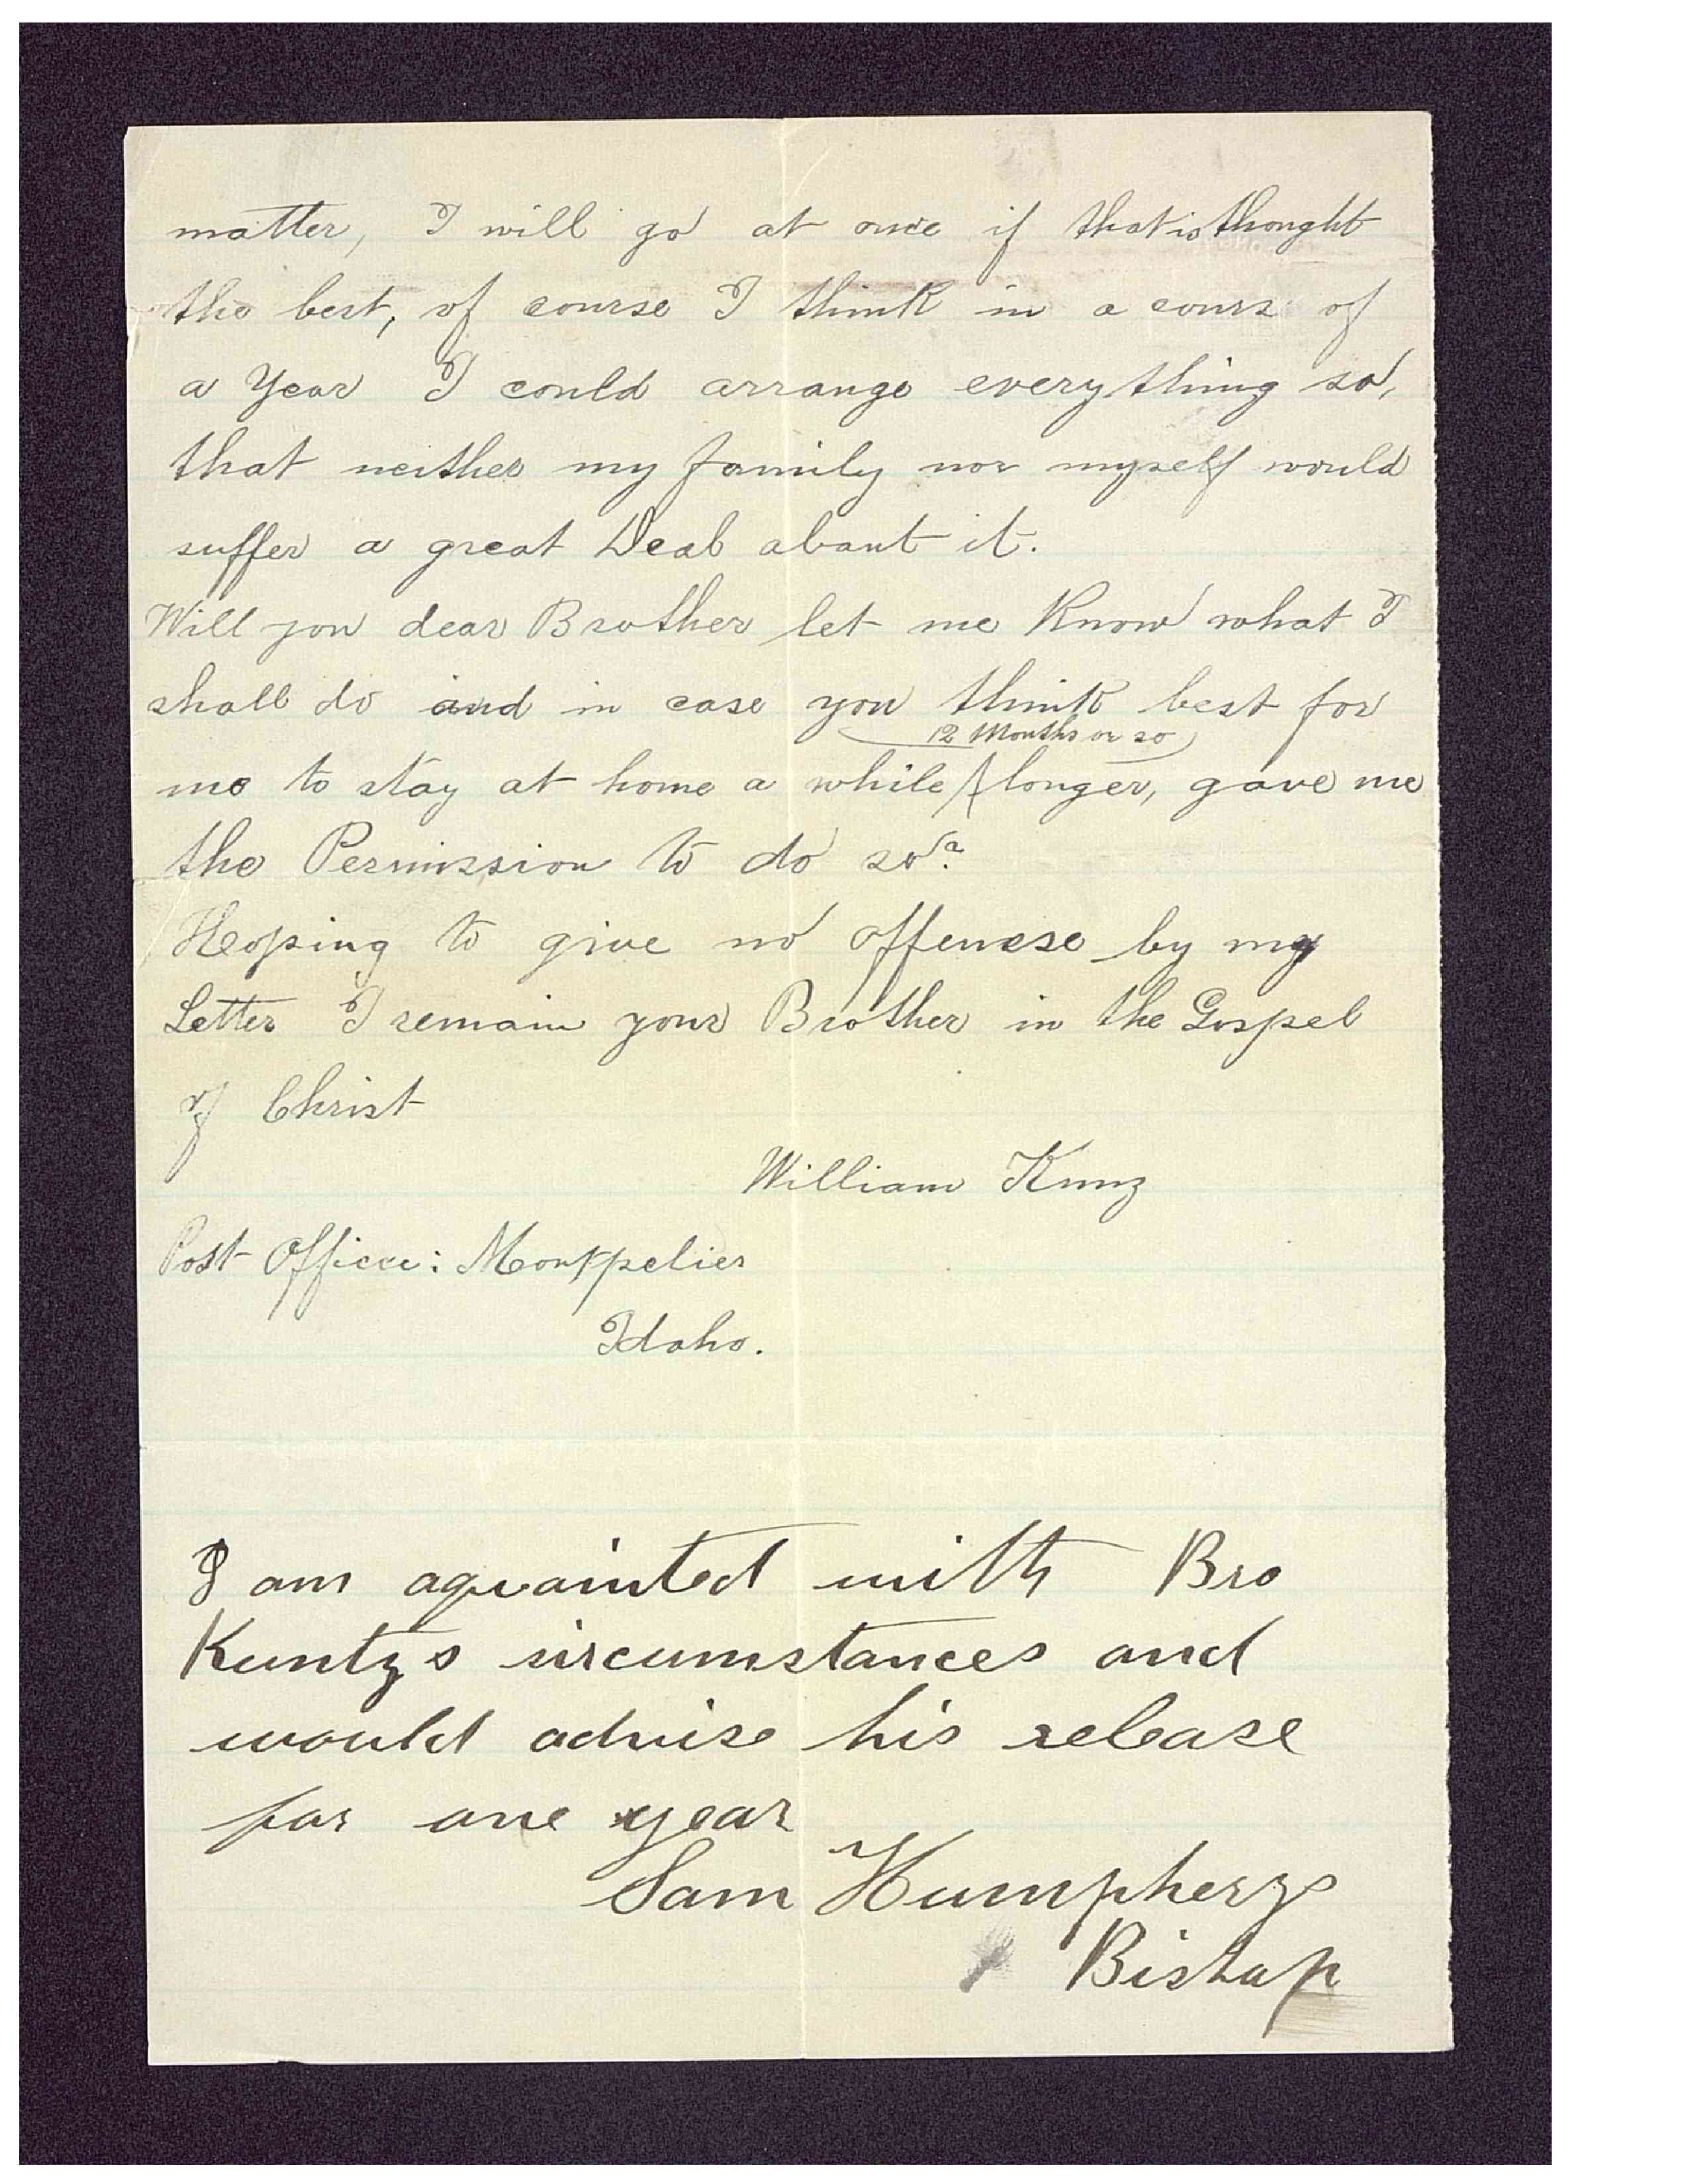 matter, I will go at once if that is thought
the best, of course I think in a cours of
a Year I could arrange everything so,
that neither my family nor myself would
suffer a great Deal about it.
Will you dear Brother let me Know what I
shall do and in case you think best for
12 Months or so
me to stay at home a while longer, gave me
the Permission to do so?
Hoping to give no offense by my
Letter I remain your Brother in the Gospel
of Christ
William Kunz
Post Office: Montpelier
Idaho.
I am aquainted with Bro
Kuntzs sircumstances and
would advise his release
for one year
Sam Humpherys
Bishop